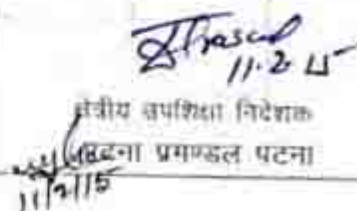 11.2.15
क्षेत्रीय उपशिक्षा निदेशक
पटना प्रमण्डल पटना
11/2/15